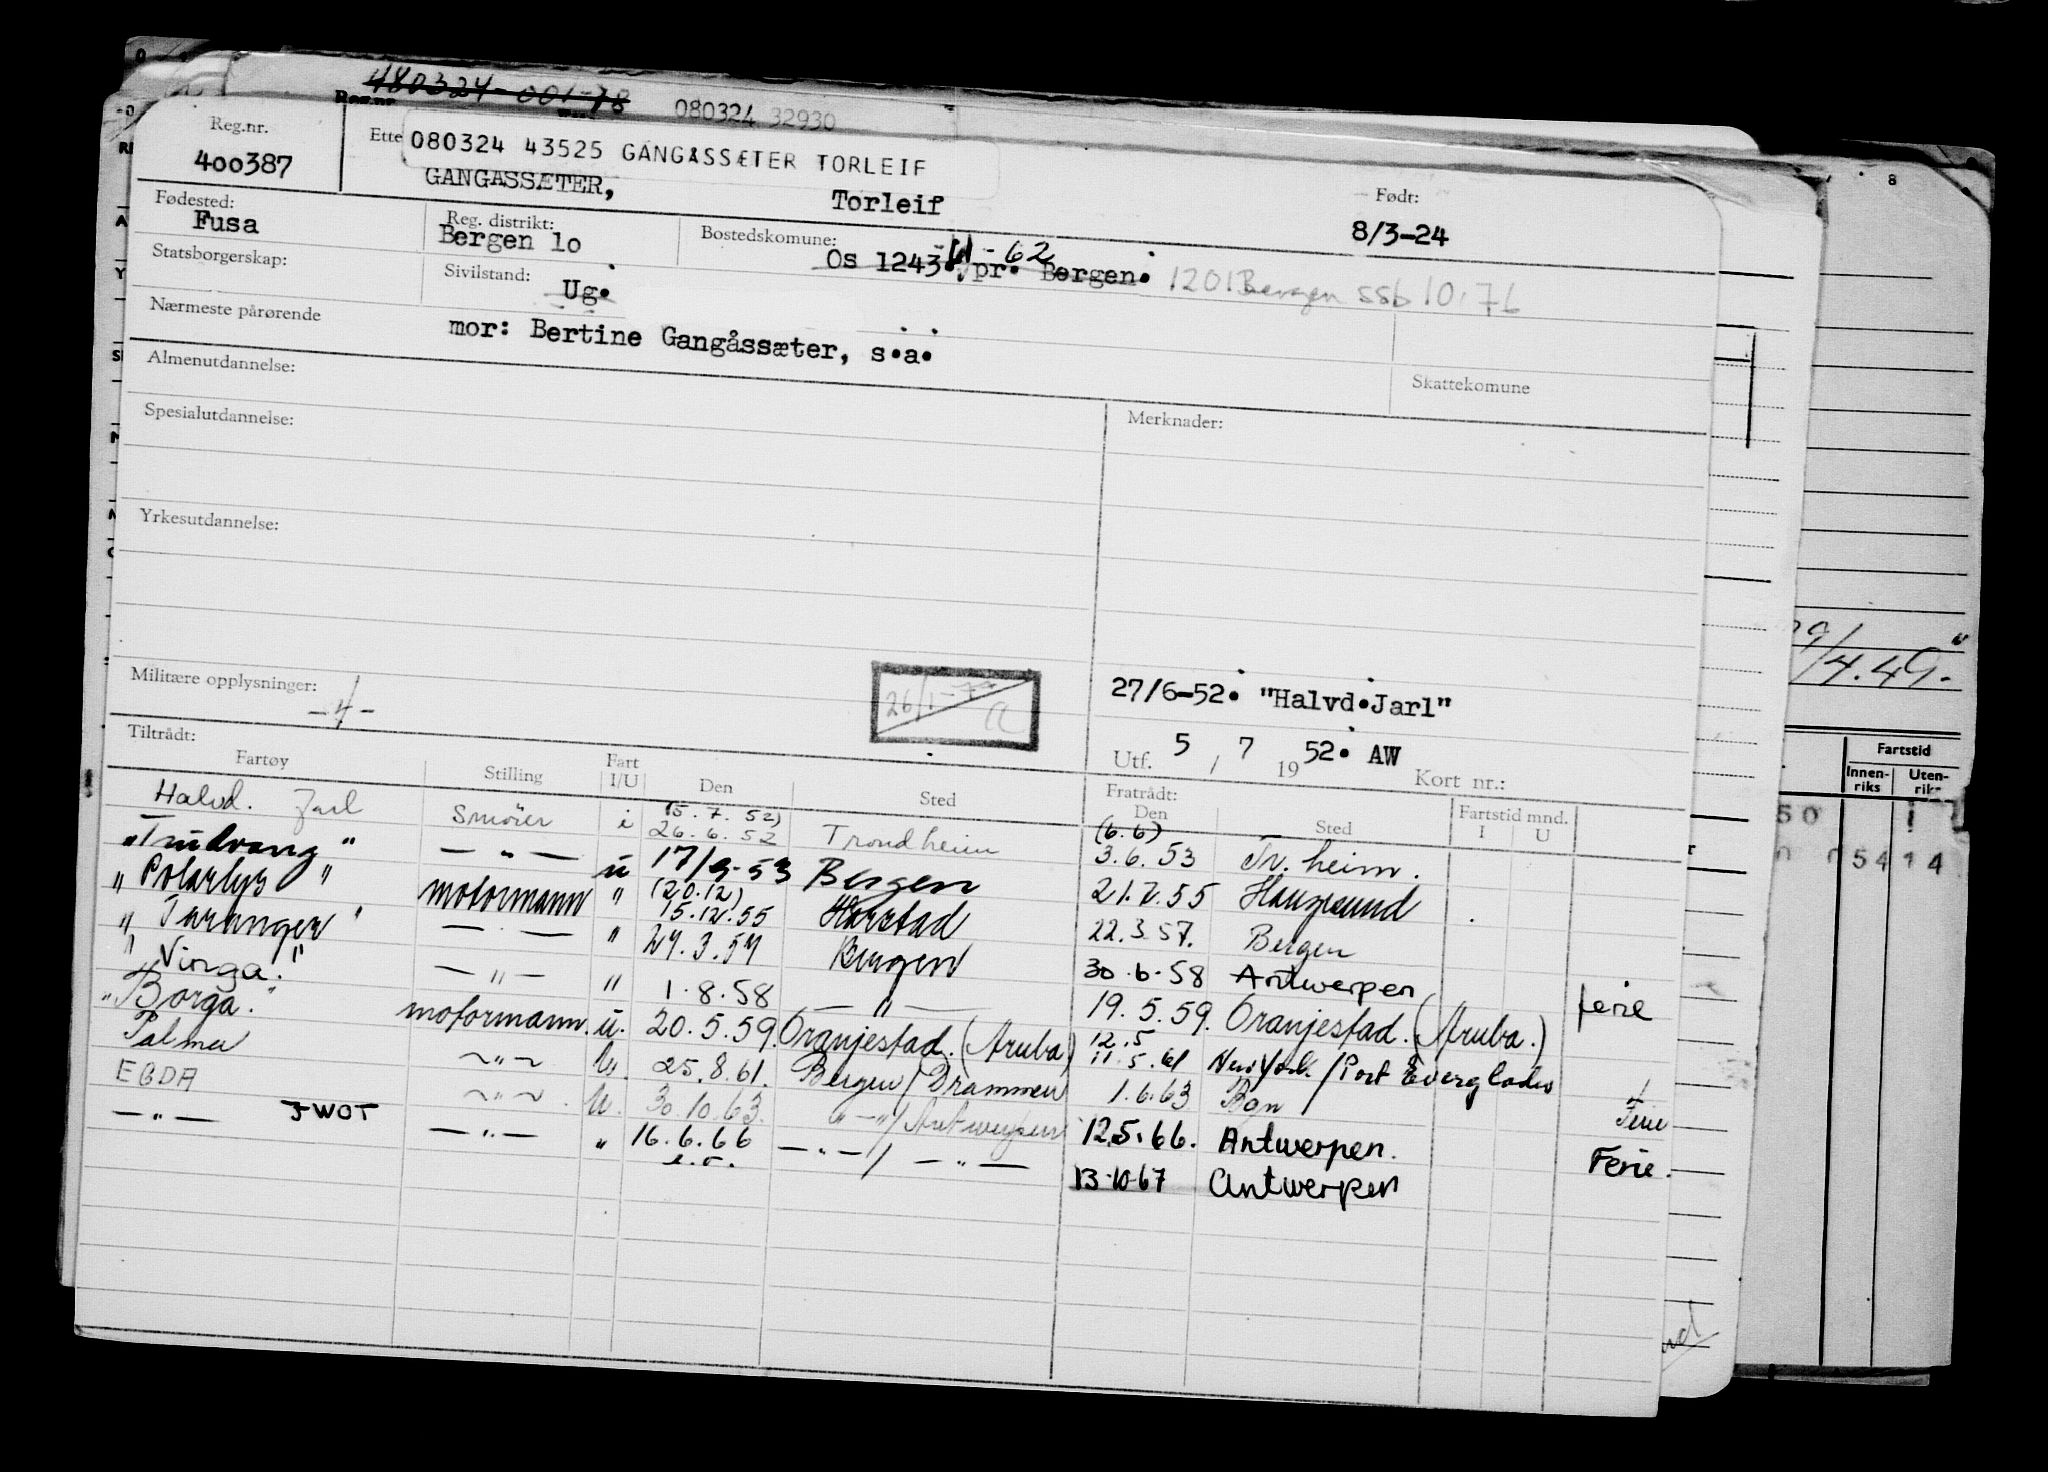 480324-001-78 080324 32930
Reg.nr. Ette 080324 43525 GANGASSÆTER TORLEIF
400387 GANGASSÆTER, Torleif Født: 8/3-24
Fødested: Fusa Reg. distrikt: Bergen lo Bostedskomune: Os 1243. pr. Bergen. -62 1201 Bergen ssb 10.76
Statsborgerskap: Sivilstand: Ug.
Nærmeste pårørende mor: Bertine Gangåssæter, s.a.
Almenutdannelse: Skattekomune
Spesialutdannelse: Merknader:
Yrkesutdannelse:
Militære opplysninger: -4- 26/1-77 a 27/6-52. "Halvd.Jarl"
Utf. 5 / 7 1952. AW Kort nr.:
Tiltrådt: Fratrådt:
Fartøy Stilling Fart I/U Den Sted Den Sted Fartstid mnd. I U
Halvd. Jarl Smører i (5.7.52) 26.6.52 Trondheim (6.6) 3.6.53 Tr.heim.
"Trudvang" — " — u 17/9-53 Bergen 21.7.55 Haugesund
"Polarlys" motormann " (20.12) 15.12.55 Harstad 22.3.57. Bergen
"Taranger" — " — " 27.3.57 Bergen 30.6.58 Antwerpen
"Vinga." — " — " 1.8.58 — " — 19.5.59. Oranjestad. (Aruba.) ferie
"Borga." motormann. u. 20.5.59. Oranjestad. (Aruba) 12.5 11.5.61 New York/Port Everglades
Palma ~ " ~ U. 25.8.61. Bergen/Drammen 1.6.63 Bgn Ferie
EGDA ~ " ~ U. 30.10.63. " — "/Antwerpen 12.5.66. Antwerpen. Ferie.
— " — JWOT — " — " 16.6.66 — " — / — " — 13-10-67 Antwerpen
e.o.
/4.49.-
Fartstid
Innenriks Utenriks
50
54 14
8